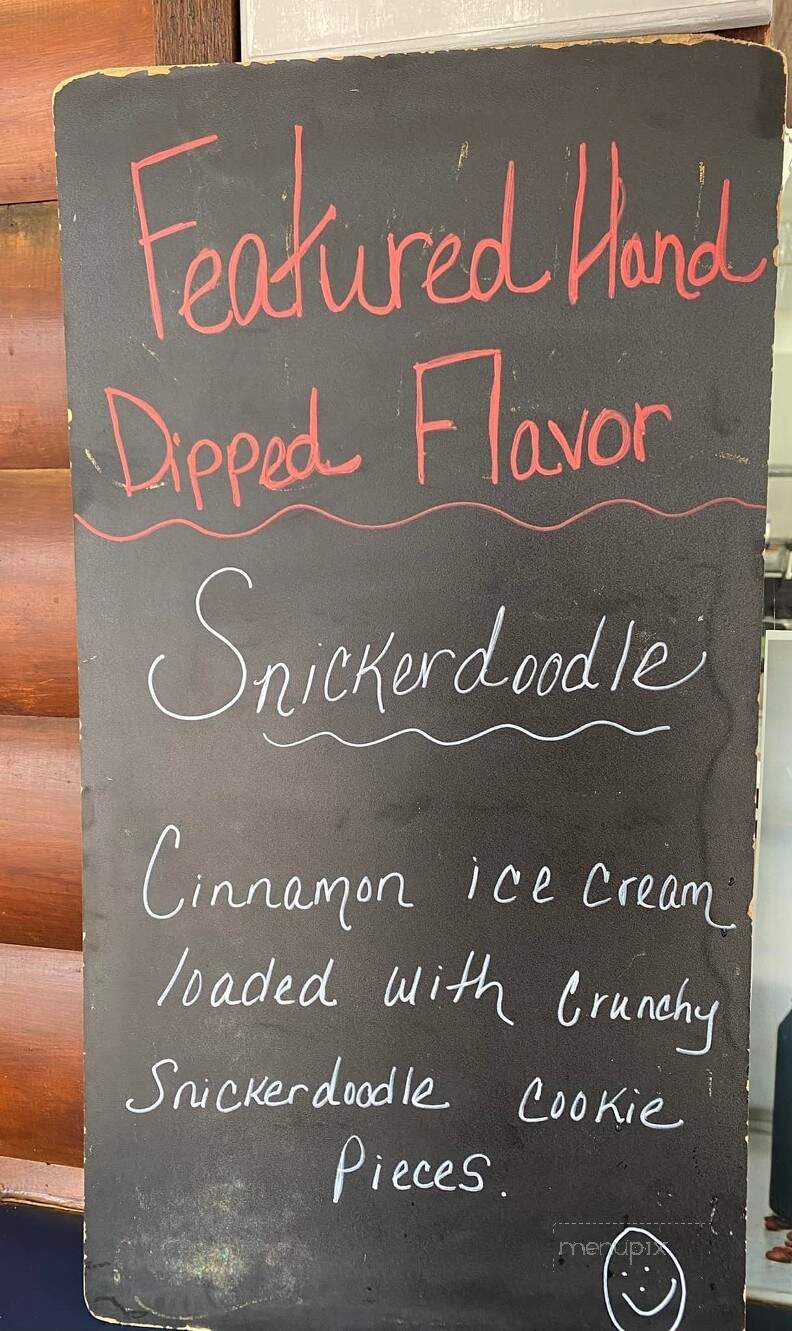 Featured Hand
Dipped Flavor
Snickerdoodle
Cinnamon ice cream
loaded with Crunchy
Snickerdoodle Cookie
Pieces.
menupix